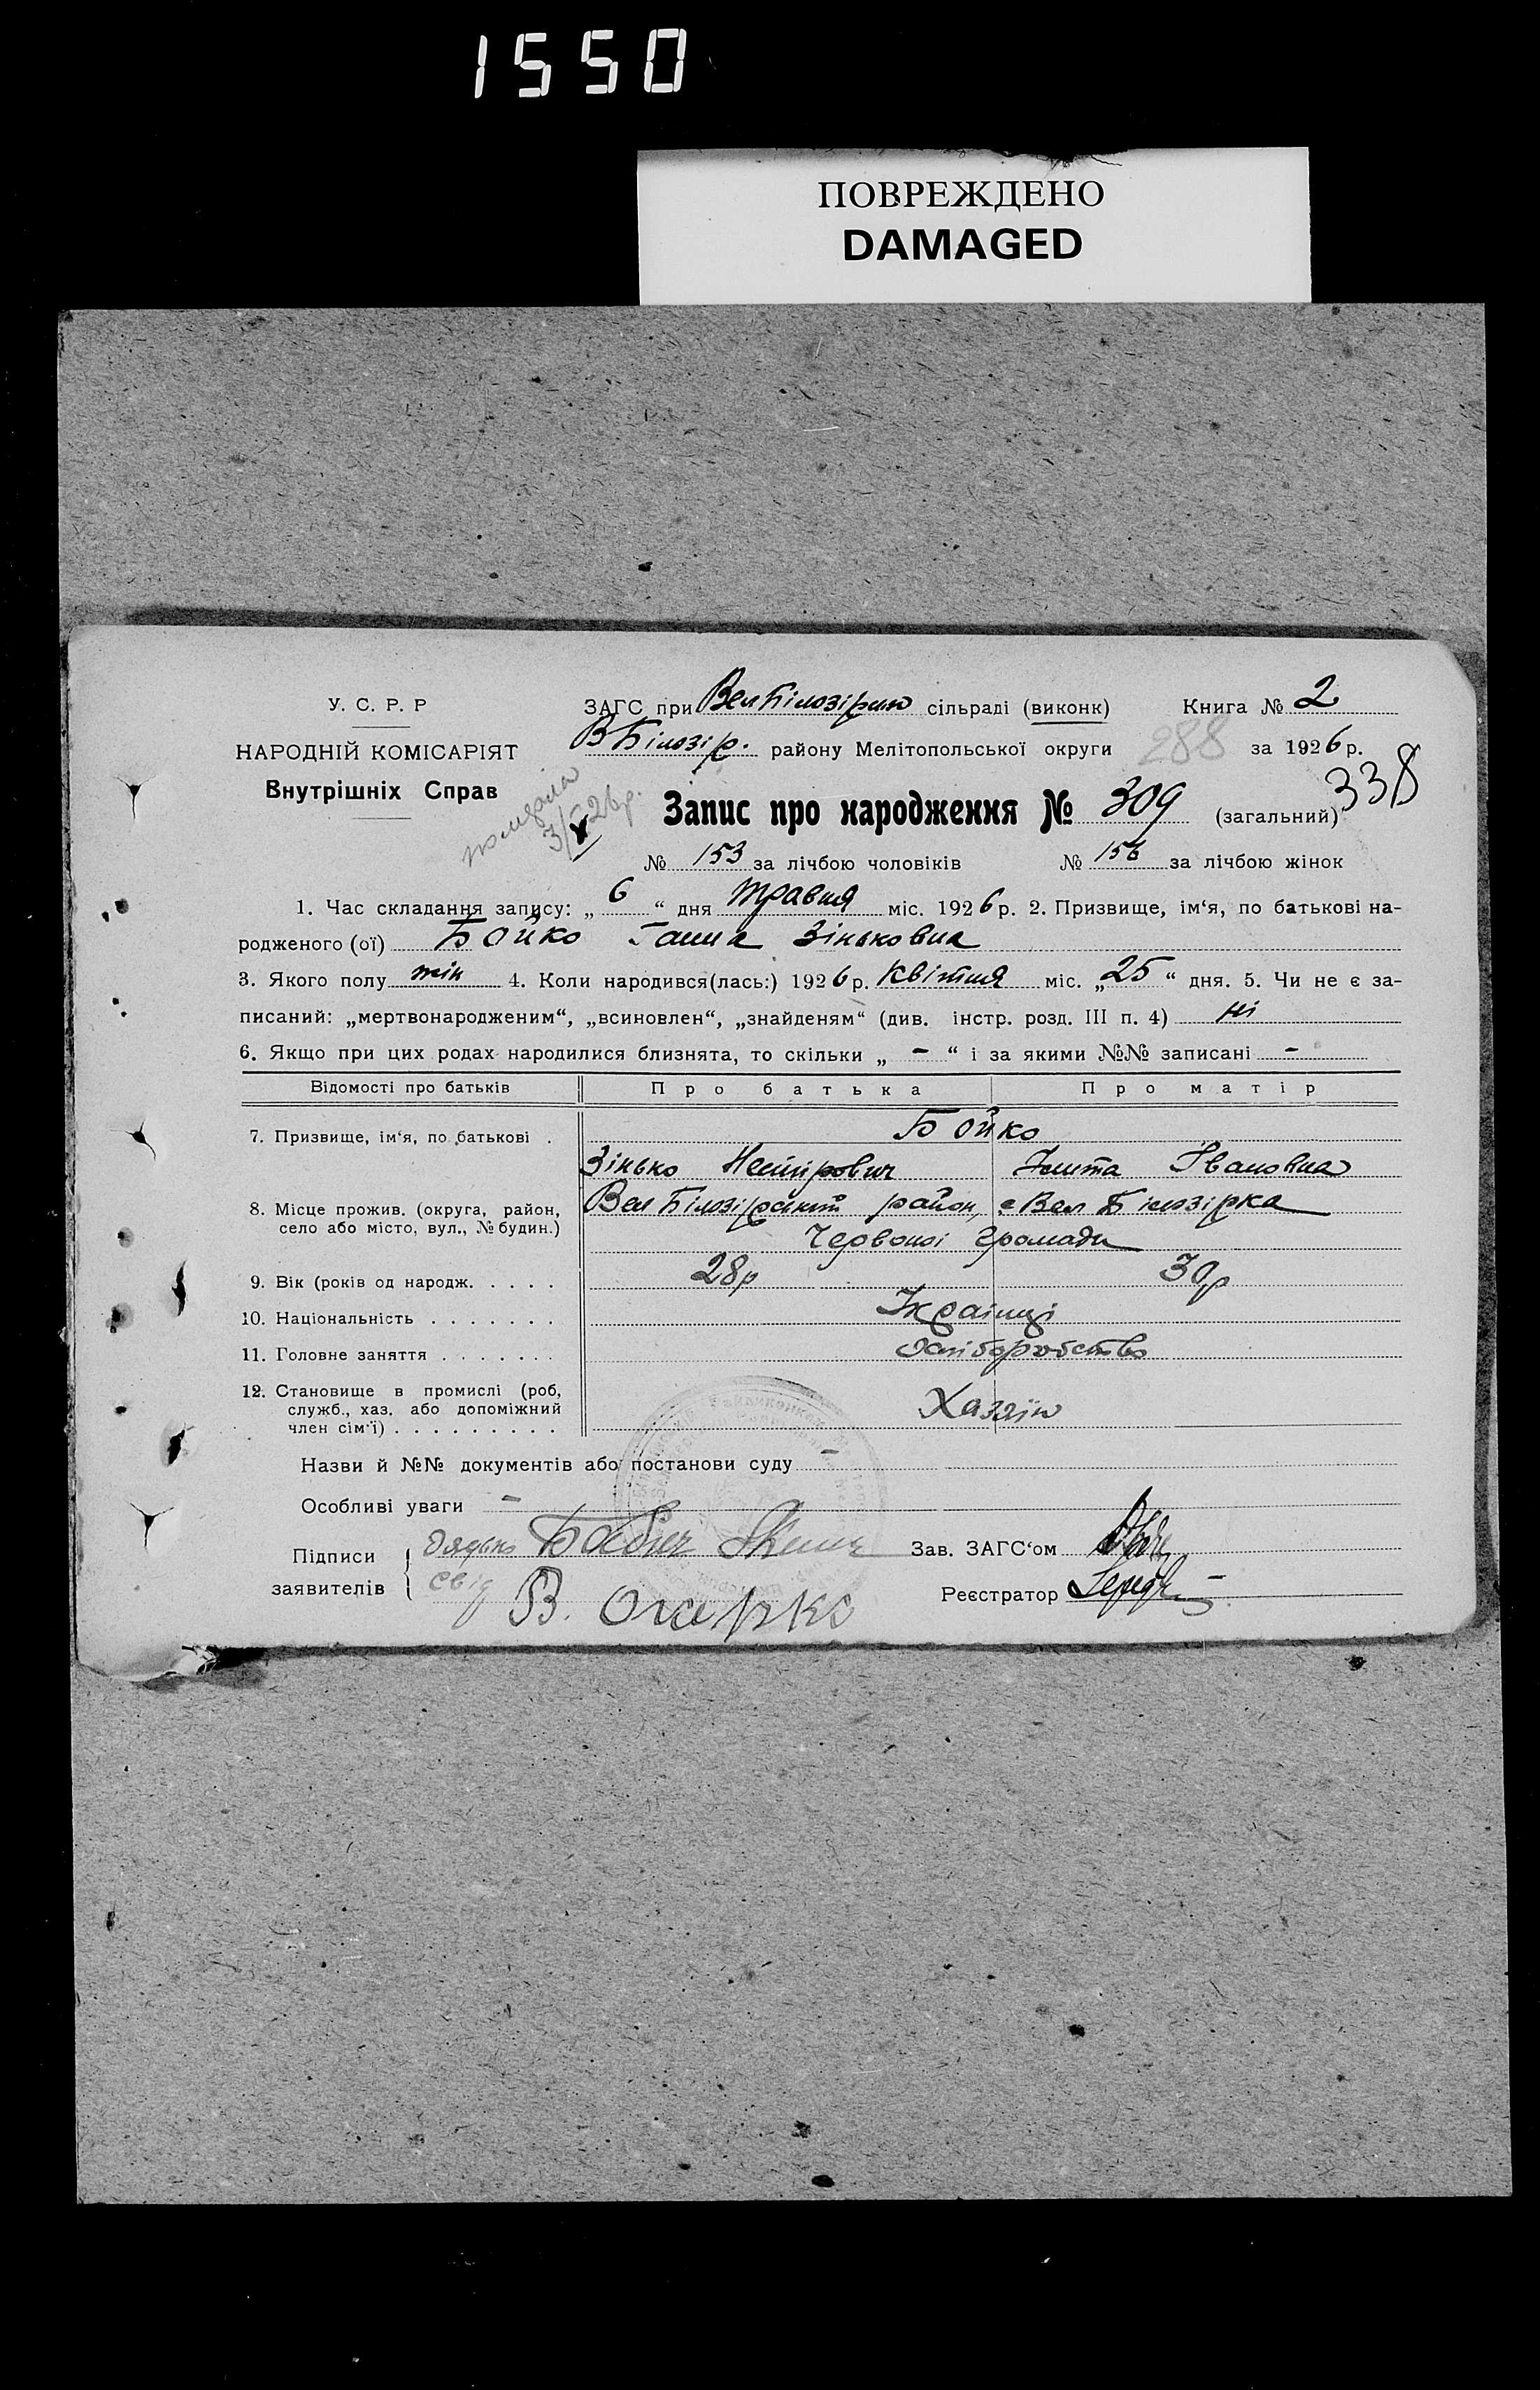 1550
ПОВРЕЖДЕНО
DAMAGED
У. С. Р. Р
ЗАГС при Вел Білозірськ сільраді (виконк) Книга № 2
НАРОДНІЙ КОМІСАРІЯТ
В Білозір. району Мелітопольської округи 288 за 1926 р.
Внутрішніх Справ
померла 3/V 26 р.
338
Запис про народження № 309 (загальний)
№ 153 за лічбою чоловіків № 156 за лічбою жінок
1. Час складання запису: „ 6 “ дня травня міс. 1926 р. 2. Призвище, ім‘я, по батькові на-
родженого (ої) Бойко Ганна Зіньковна
3. Якого полу жін 4. Коли народився(лась:) 1926 р. Квітня міс. „ 25 “ дня. 5. Чи не є за-
писаний: „мертвонародженим“, „всиновлен“, „знайденям“ (див. інстр. розд. III п. 4) ні
6. Якщо при цих родах народилися близнята, то скільки „ - “ і за якими №№ записані -
Відомості про батьків Про батька Про матір
7. Призвище, ім‘я, по батькові . Бойко
Зінько Івановна
8. Місце прожив. (округа, район, Вел Білозірський район, с Вел Білозірка
село або місто, вул., № будин.) Червоної Громади
9. Вік (років од народж. . . . . 28 р 30 р
10. Національність . . . . . . . Українці
11. Головне заняття . . . . . . . хліборобство
12. Становище в промислі (роб,
служб., хаз. або допоміжний Хазяїн
член сім‘ї) . . . . . . . . .
Назви й №№ документів або постанови суду -
Особливі уваги -
Підписи дядько Бабич Зав. ЗАГС‘ом
заявителів свід В. Реєстратор